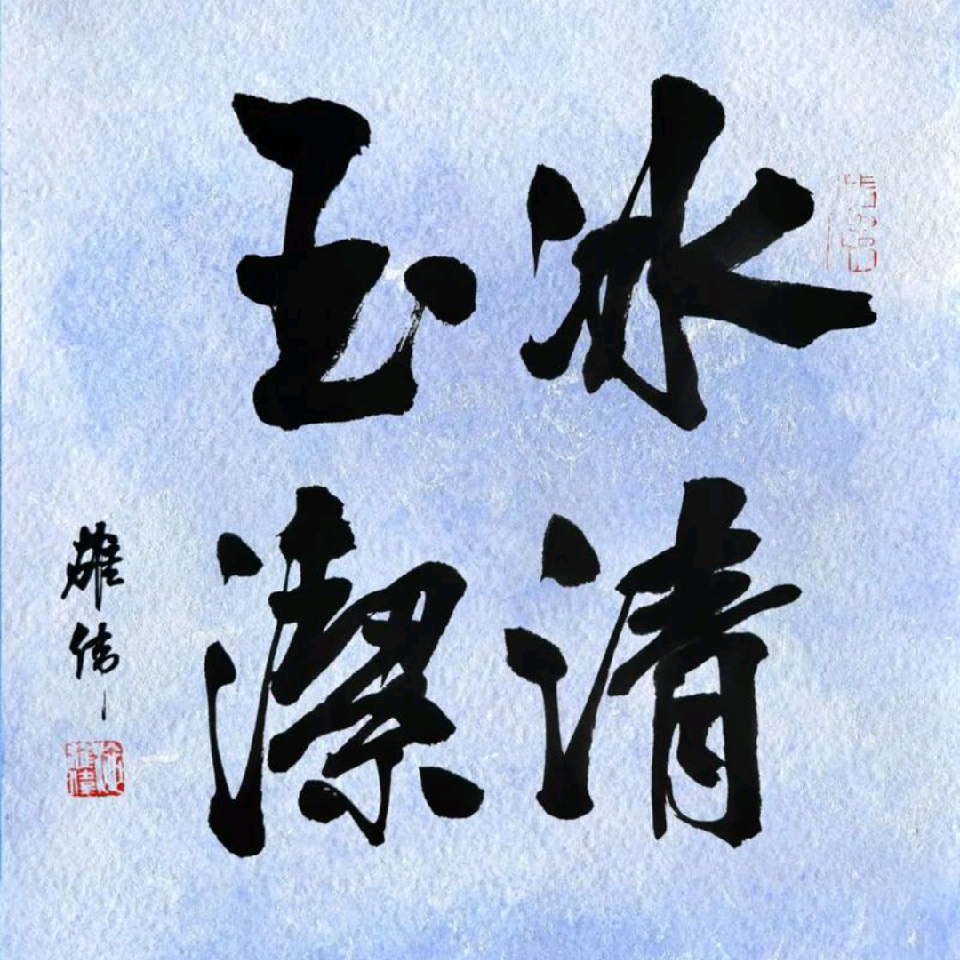 冰清
玉潔
雄偉